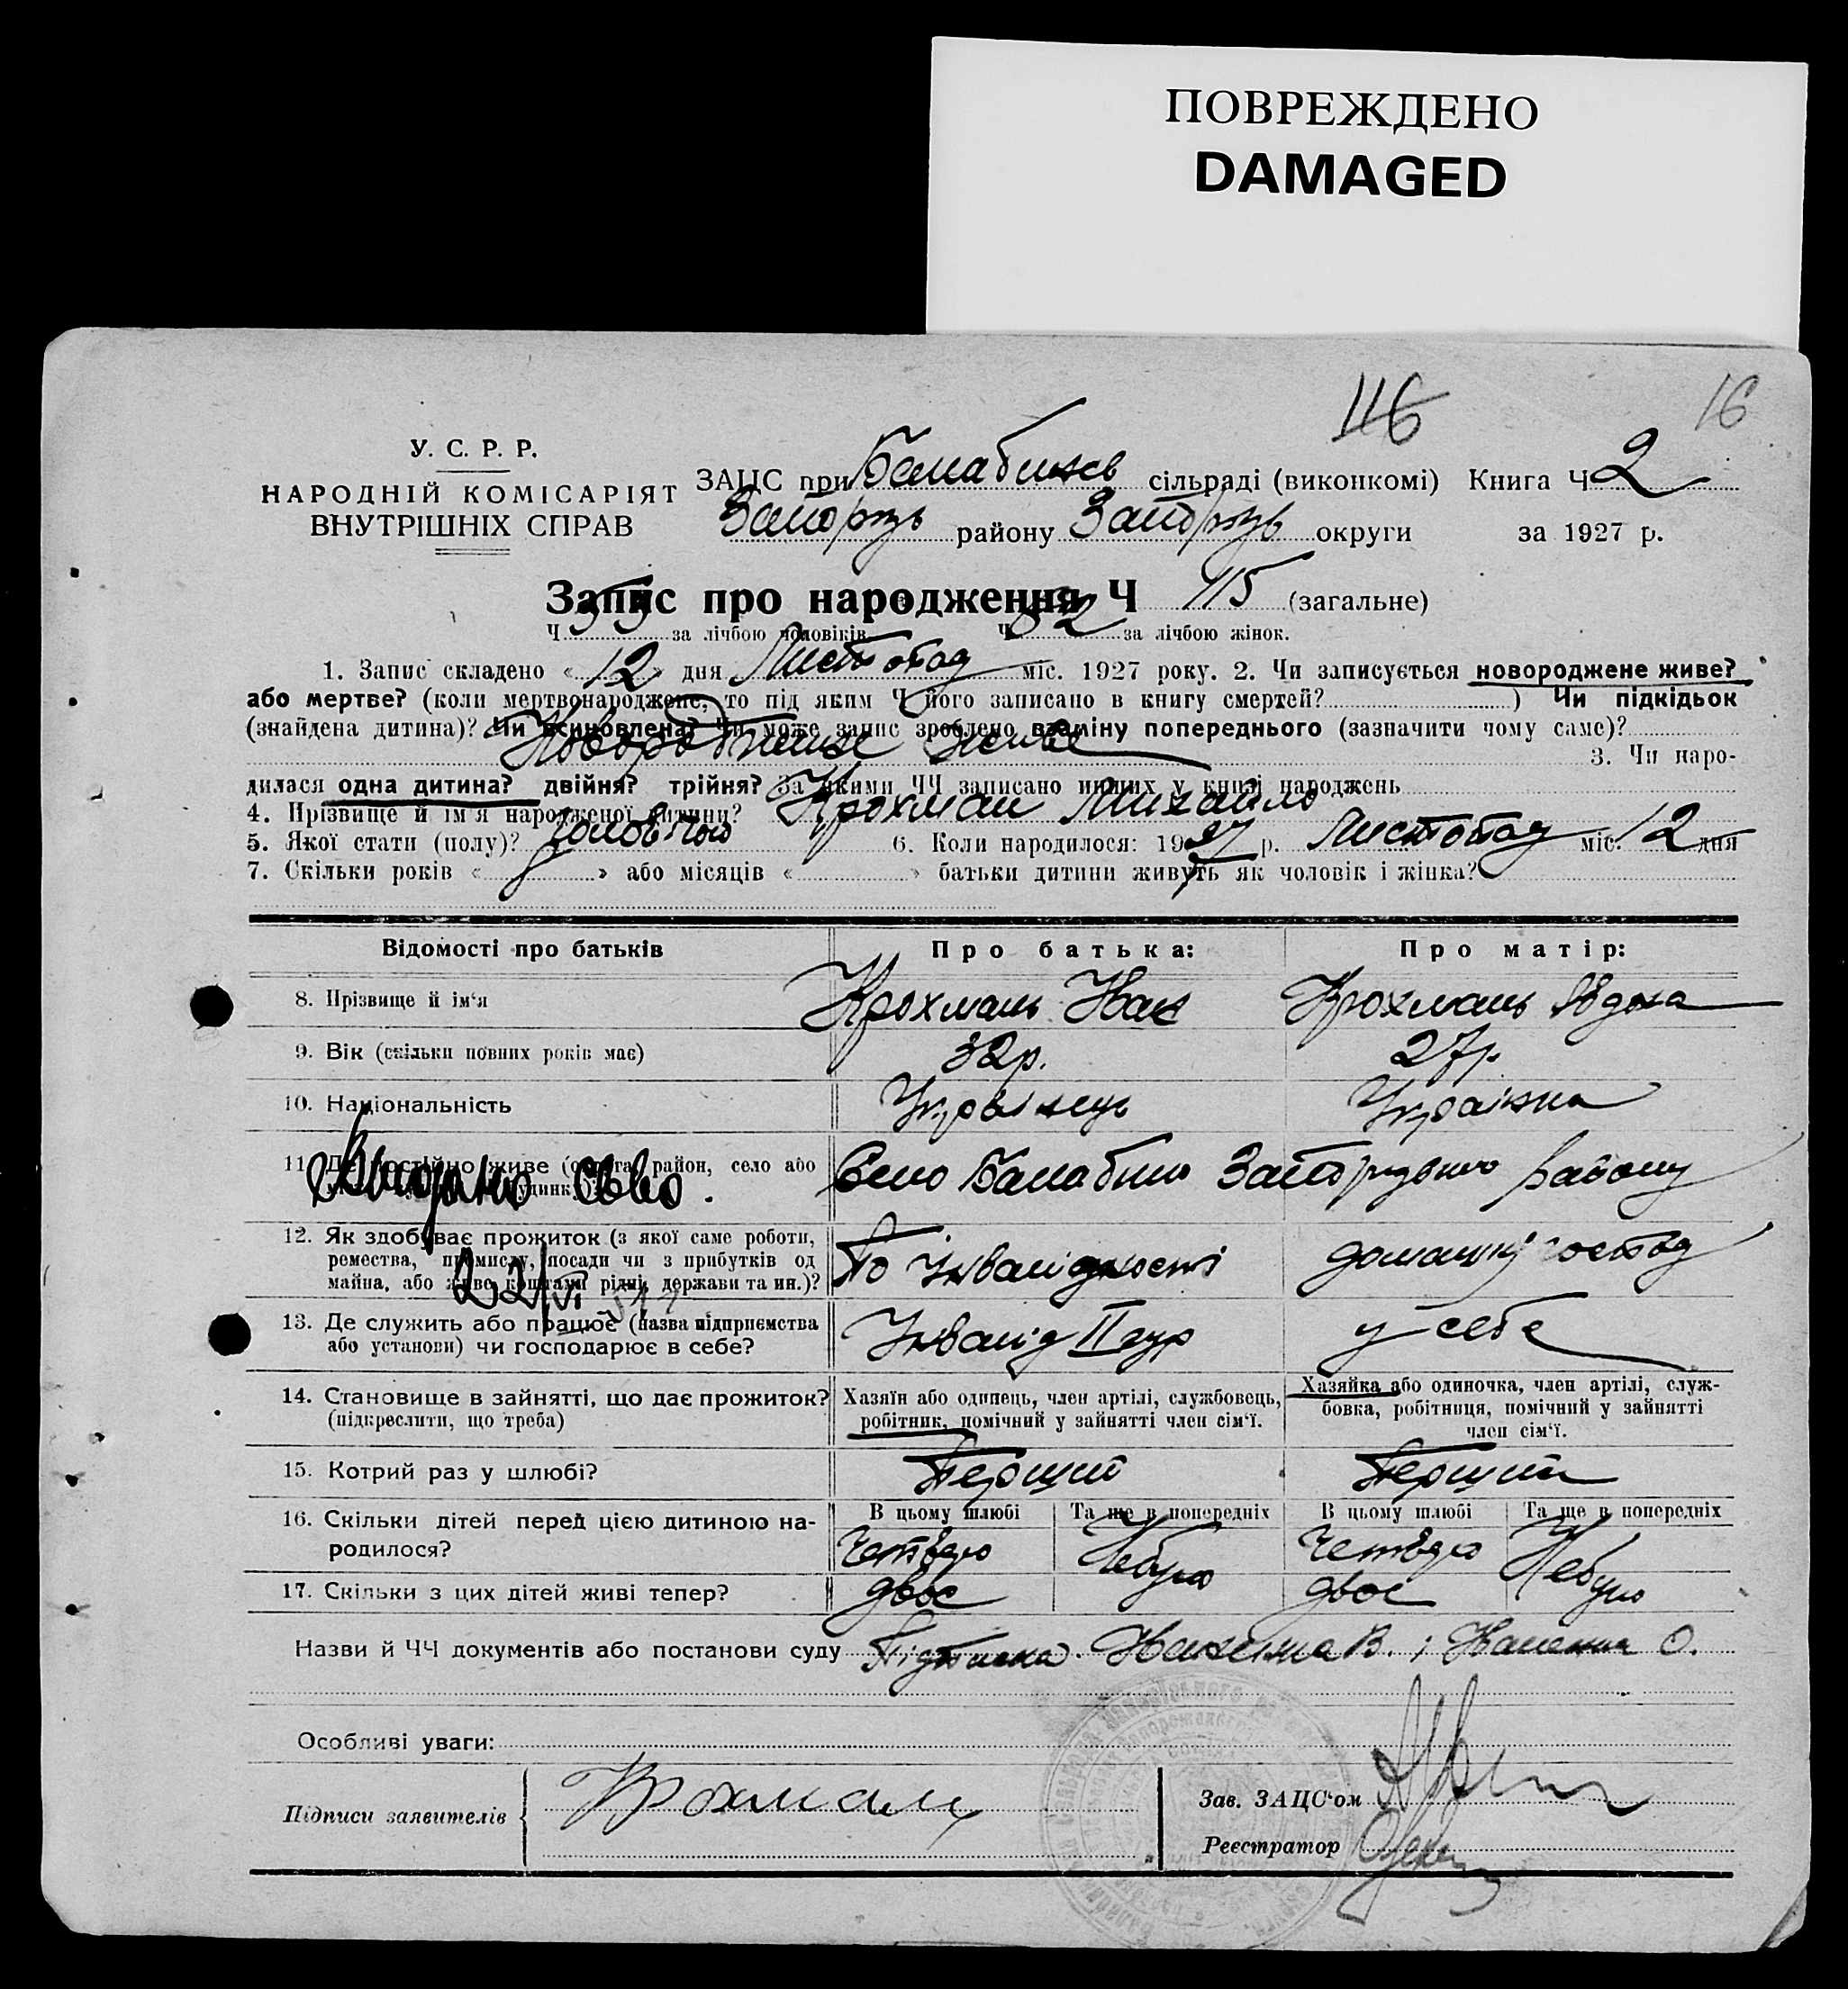 ПОВРЕЖДЕНО
DAMAGED
116 16
У. С. Р. Р.
НАРОДНІЙ КОМІСАРІЯТ
ВНУТРІШНІХ СПРАВ
ЗАЦС при Балабинев сільраді (виконкомі) Книга Ч 2
Запорізь району Запорізь округи за 1927 р.
Запис про народження Ч 115 (загальне)
Ч за лічбою чоловіків Ч за лічбою жінок.
1. Запис складено « 12 » дня Листопад міс. 1927 року. 2. Чи записується новороджене живе?
або мертве? (коли мертвонароджене, то під яким Ч його записано в книгу смертей? ) Чи підкідьок
(знайдена дитина)? Чи всиновлена? Чи може запис зроблено взаміну попереднього (зазначити чому саме)?
живе 3. Чи наро-
дилася одна дитина? двійня? трійня? За якими ЧЧ записано инших у книзі народжень
4. Прізвище й ім'я народженої дитини? Крохмаль Михайло
5. Якої стати (полу)? чоловічою 6. Коли народилося: 1927 р. Листопад міс. 12 дня
7. Скільки років « » або місяців « » батьки дитини живуть як чоловік і жінка?
Відомості про батьків Про батька: Про матір:
8. Прізвище й ім'я Крохмаль Іван Крохмаль Явдоха
9. Вік (скільки повних років має) 32р. 27р.
10. Національність Українець Українка
11. Де постійно живе (округа, район, село або
Село Балабино Запорізького району
Видано
12. Як здобуває прожиток (з якої саме роботи,
ремества, промислу, посади чи з прибутків од
майна, або живе коштами рідні, держави та ин.)?
По Інвалідності домашнє господ
22/VI
13. Де служить або працює (назва підприємства
або установи) чи господарює в себе?
Інвалід II гр у себе
14. Становище в зайнятті, що дає прожиток?
(підкреслити, що треба)
Хазяїн або одинець, член артілі, службовець,
робітник, помічний у зайнятті член сім'ї.
Хазяйка або одиночка, член артілі, служ-
бовка, робітниця, помічний у зайнятті
член сім'ї.
15. Котрий раз у шлюбі? Перший Перший
16. Скільки дітей перед цією дитиною на-
родилося?
В цьому шлюбі Та ще в попередніх В цьому шлюбі Та ще в попередніх
Четверо Небуло Четверо Небуло
17. Скільки з цих дітей живі тепер? двоє двоє
Назви й ЧЧ документів або постанови суду Підписка
Особливі уваги:
Підписи заявителів Крохмаль
Зав. ЗАЦС'ом
Реєстратор